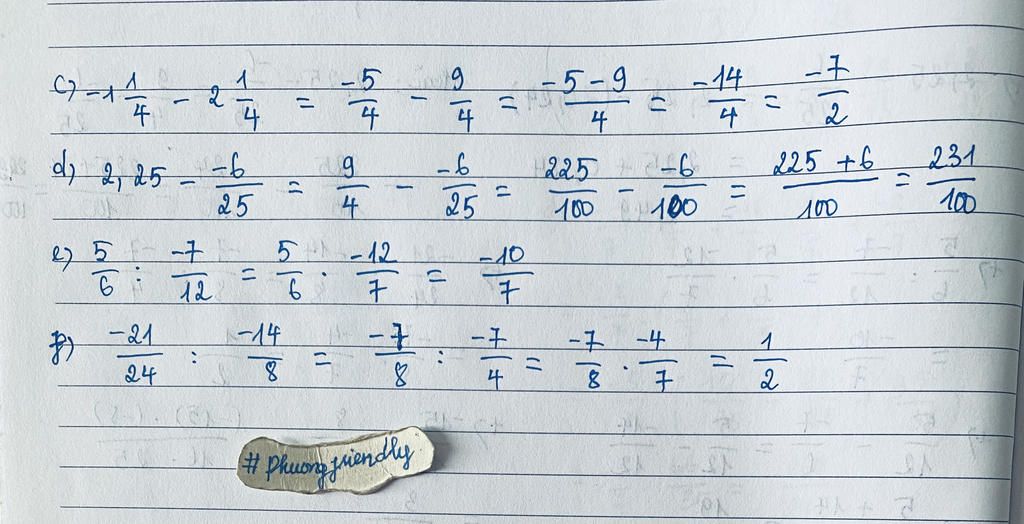 c) -1 1/4 - 2 1/4 = -5/4 - 9/4 = -5-9/4 = -14/4 = -7/2
d) 2,25 - -6/25 = 9/4 - -6/25 = 225/100 - -6/100 = 225+6/100 = 231/100
e) 5/6 : -7/12 = 5/6 . -12/7 = -10/7
f) -21/24 : -14/8 = -7/8 : -7/4 = -7/8 . -4/7 = 1/2
# phuongfriendly